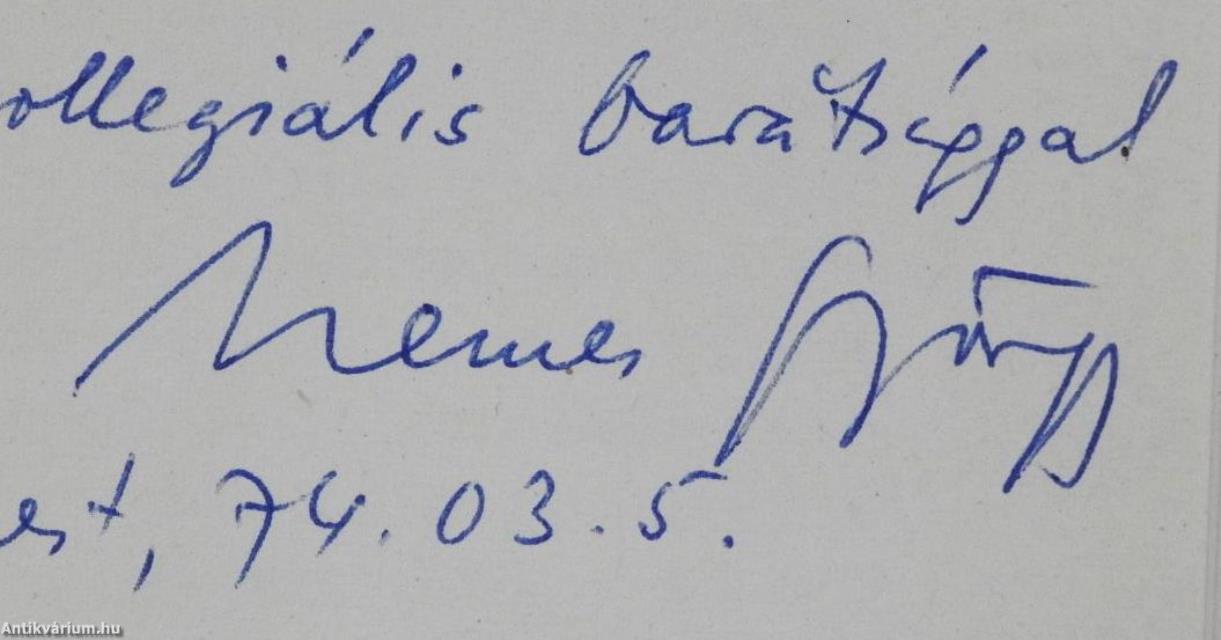 ollegiális barátsággal
Nemes György
est, 74.03.5.
Antikvárium.hu